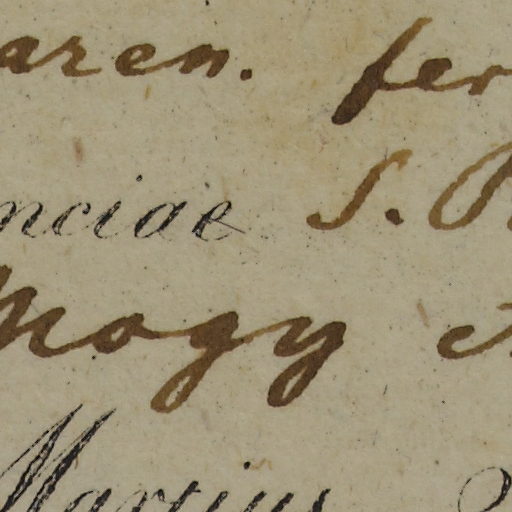 aren. fer
nciae S. P
Mogy e
Martius